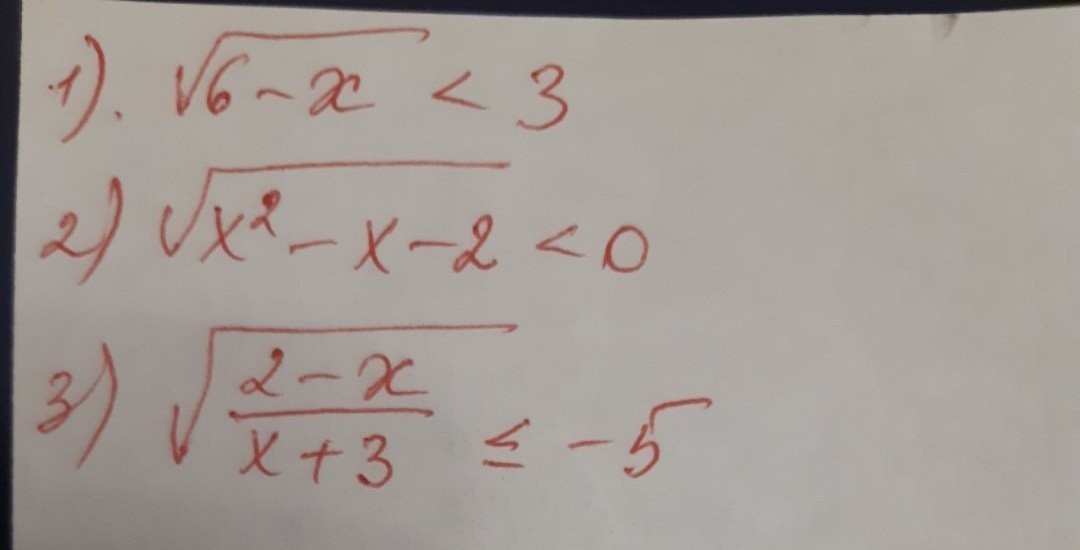 1). √6-x < 3
2) √x²-x-2 < 0
3) √(2-x)/(x+3) ≤ -5